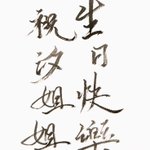 祝汐姐姐
生日快樂